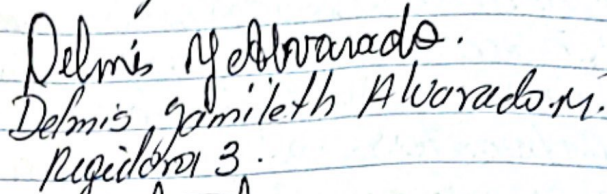 Delmis Y Alvarado.
Delmis Yamileth Alvarado.M.
Regidora 3.